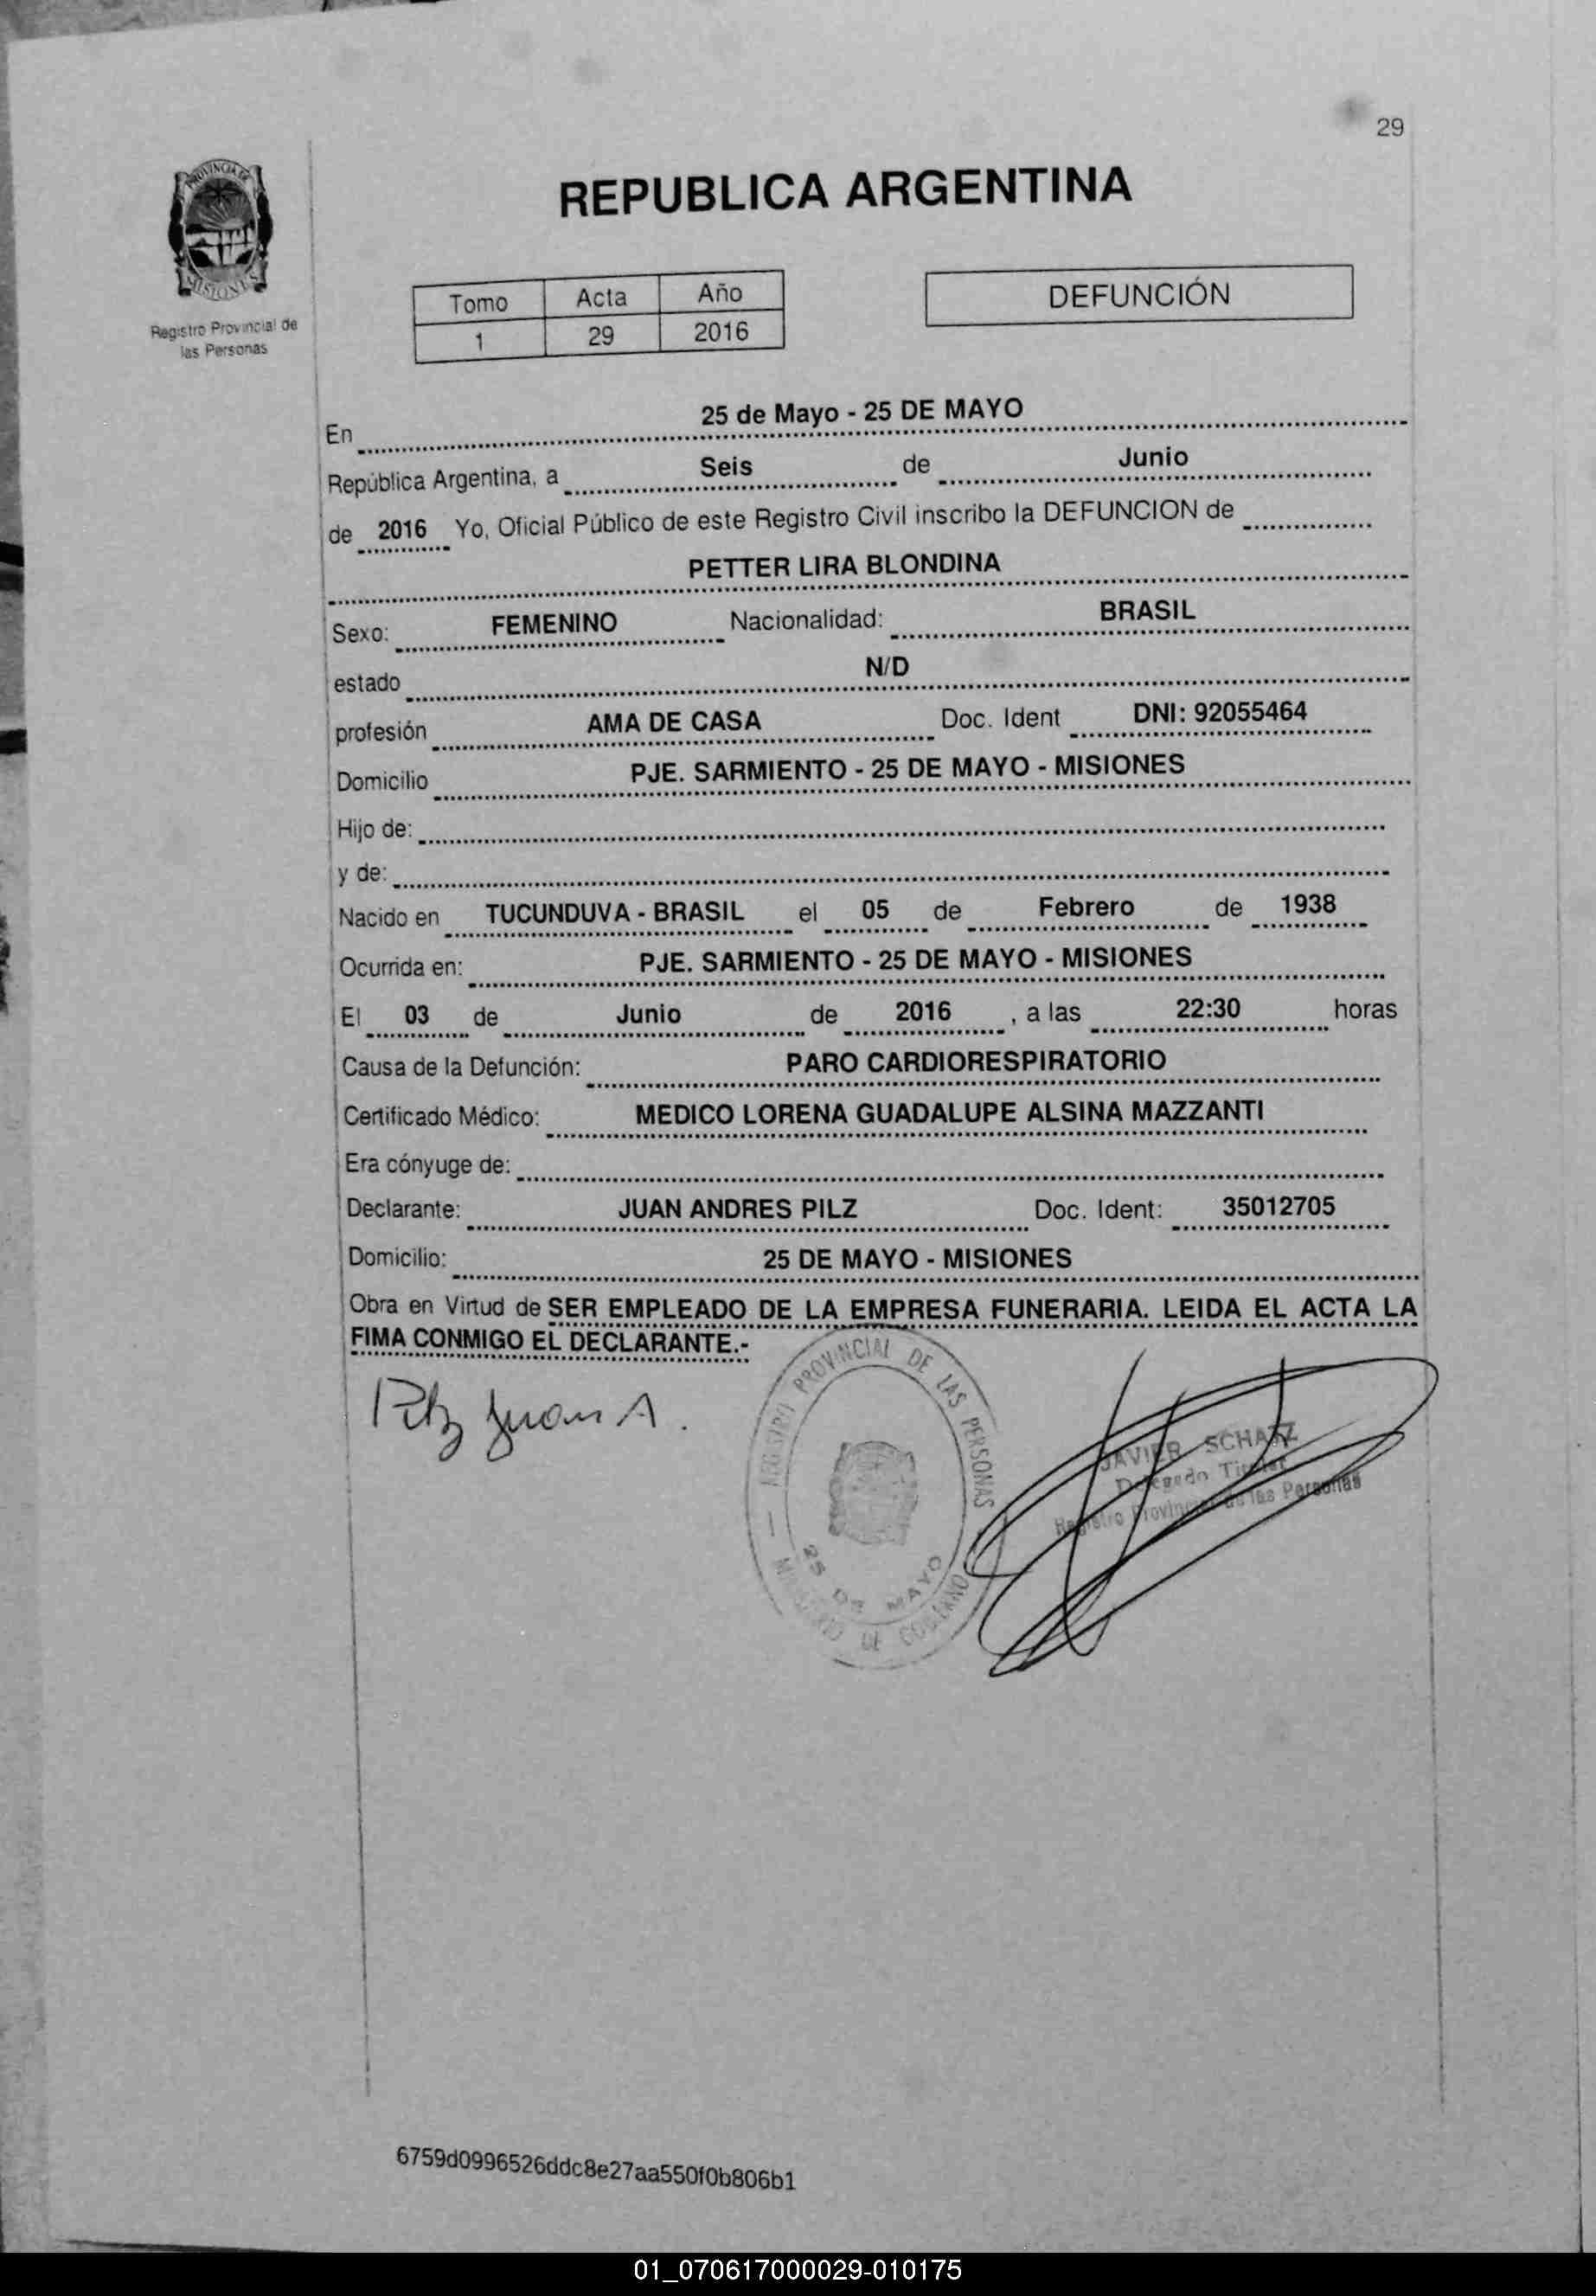 29
PROVINCIA DE
MISIONES
Registro Provincial de
las Personas
REPUBLICA ARGENTINA
Tomo Acta Año
1 29 2016
DEFUNCIÓN
En 25 de Mayo - 25 DE MAYO
República Argentina, a Seis de Junio
de 2016 Yo, Oficial Público de este Registro Civil inscribo la DEFUNCION de
PETTER LIRA BLONDINA
Sexo: FEMENINO Nacionalidad: BRASIL
estado N/D
profesión AMA DE CASA Doc. Ident DNI: 92055464
Domicilio PJE. SARMIENTO - 25 DE MAYO - MISIONES
Hijo de:
y de:
Nacido en TUCUNDUVA - BRASIL el 05 de Febrero de 1938
Ocurrida en: PJE. SARMIENTO - 25 DE MAYO - MISIONES
El 03 de Junio de 2016 , a las 22:30 horas
Causa de la Defunción: PARO CARDIORESPIRATORIO
Certificado Médico: MEDICO LORENA GUADALUPE ALSINA MAZZANTI
Era cónyuge de:
Declarante: JUAN ANDRES PILZ Doc. Ident: 35012705
Domicilio: 25 DE MAYO - MISIONES
Obra en Virtud de SER EMPLEADO DE LA EMPRESA FUNERARIA. LEIDA EL ACTA LA
FIMA CONMIGO EL DECLARANTE.-
Pilz Juan A.
REGISTRO PROVINCIAL DE LAS PERSONAS
25 DE MAYO
MINISTERIO DE GOBIERNO
JAVIER SCHATZ
Delegado Titular
Registro Provincial de las Personas
6759d0996526ddc8e27aa550f0b806b1
01_070617000029-010175